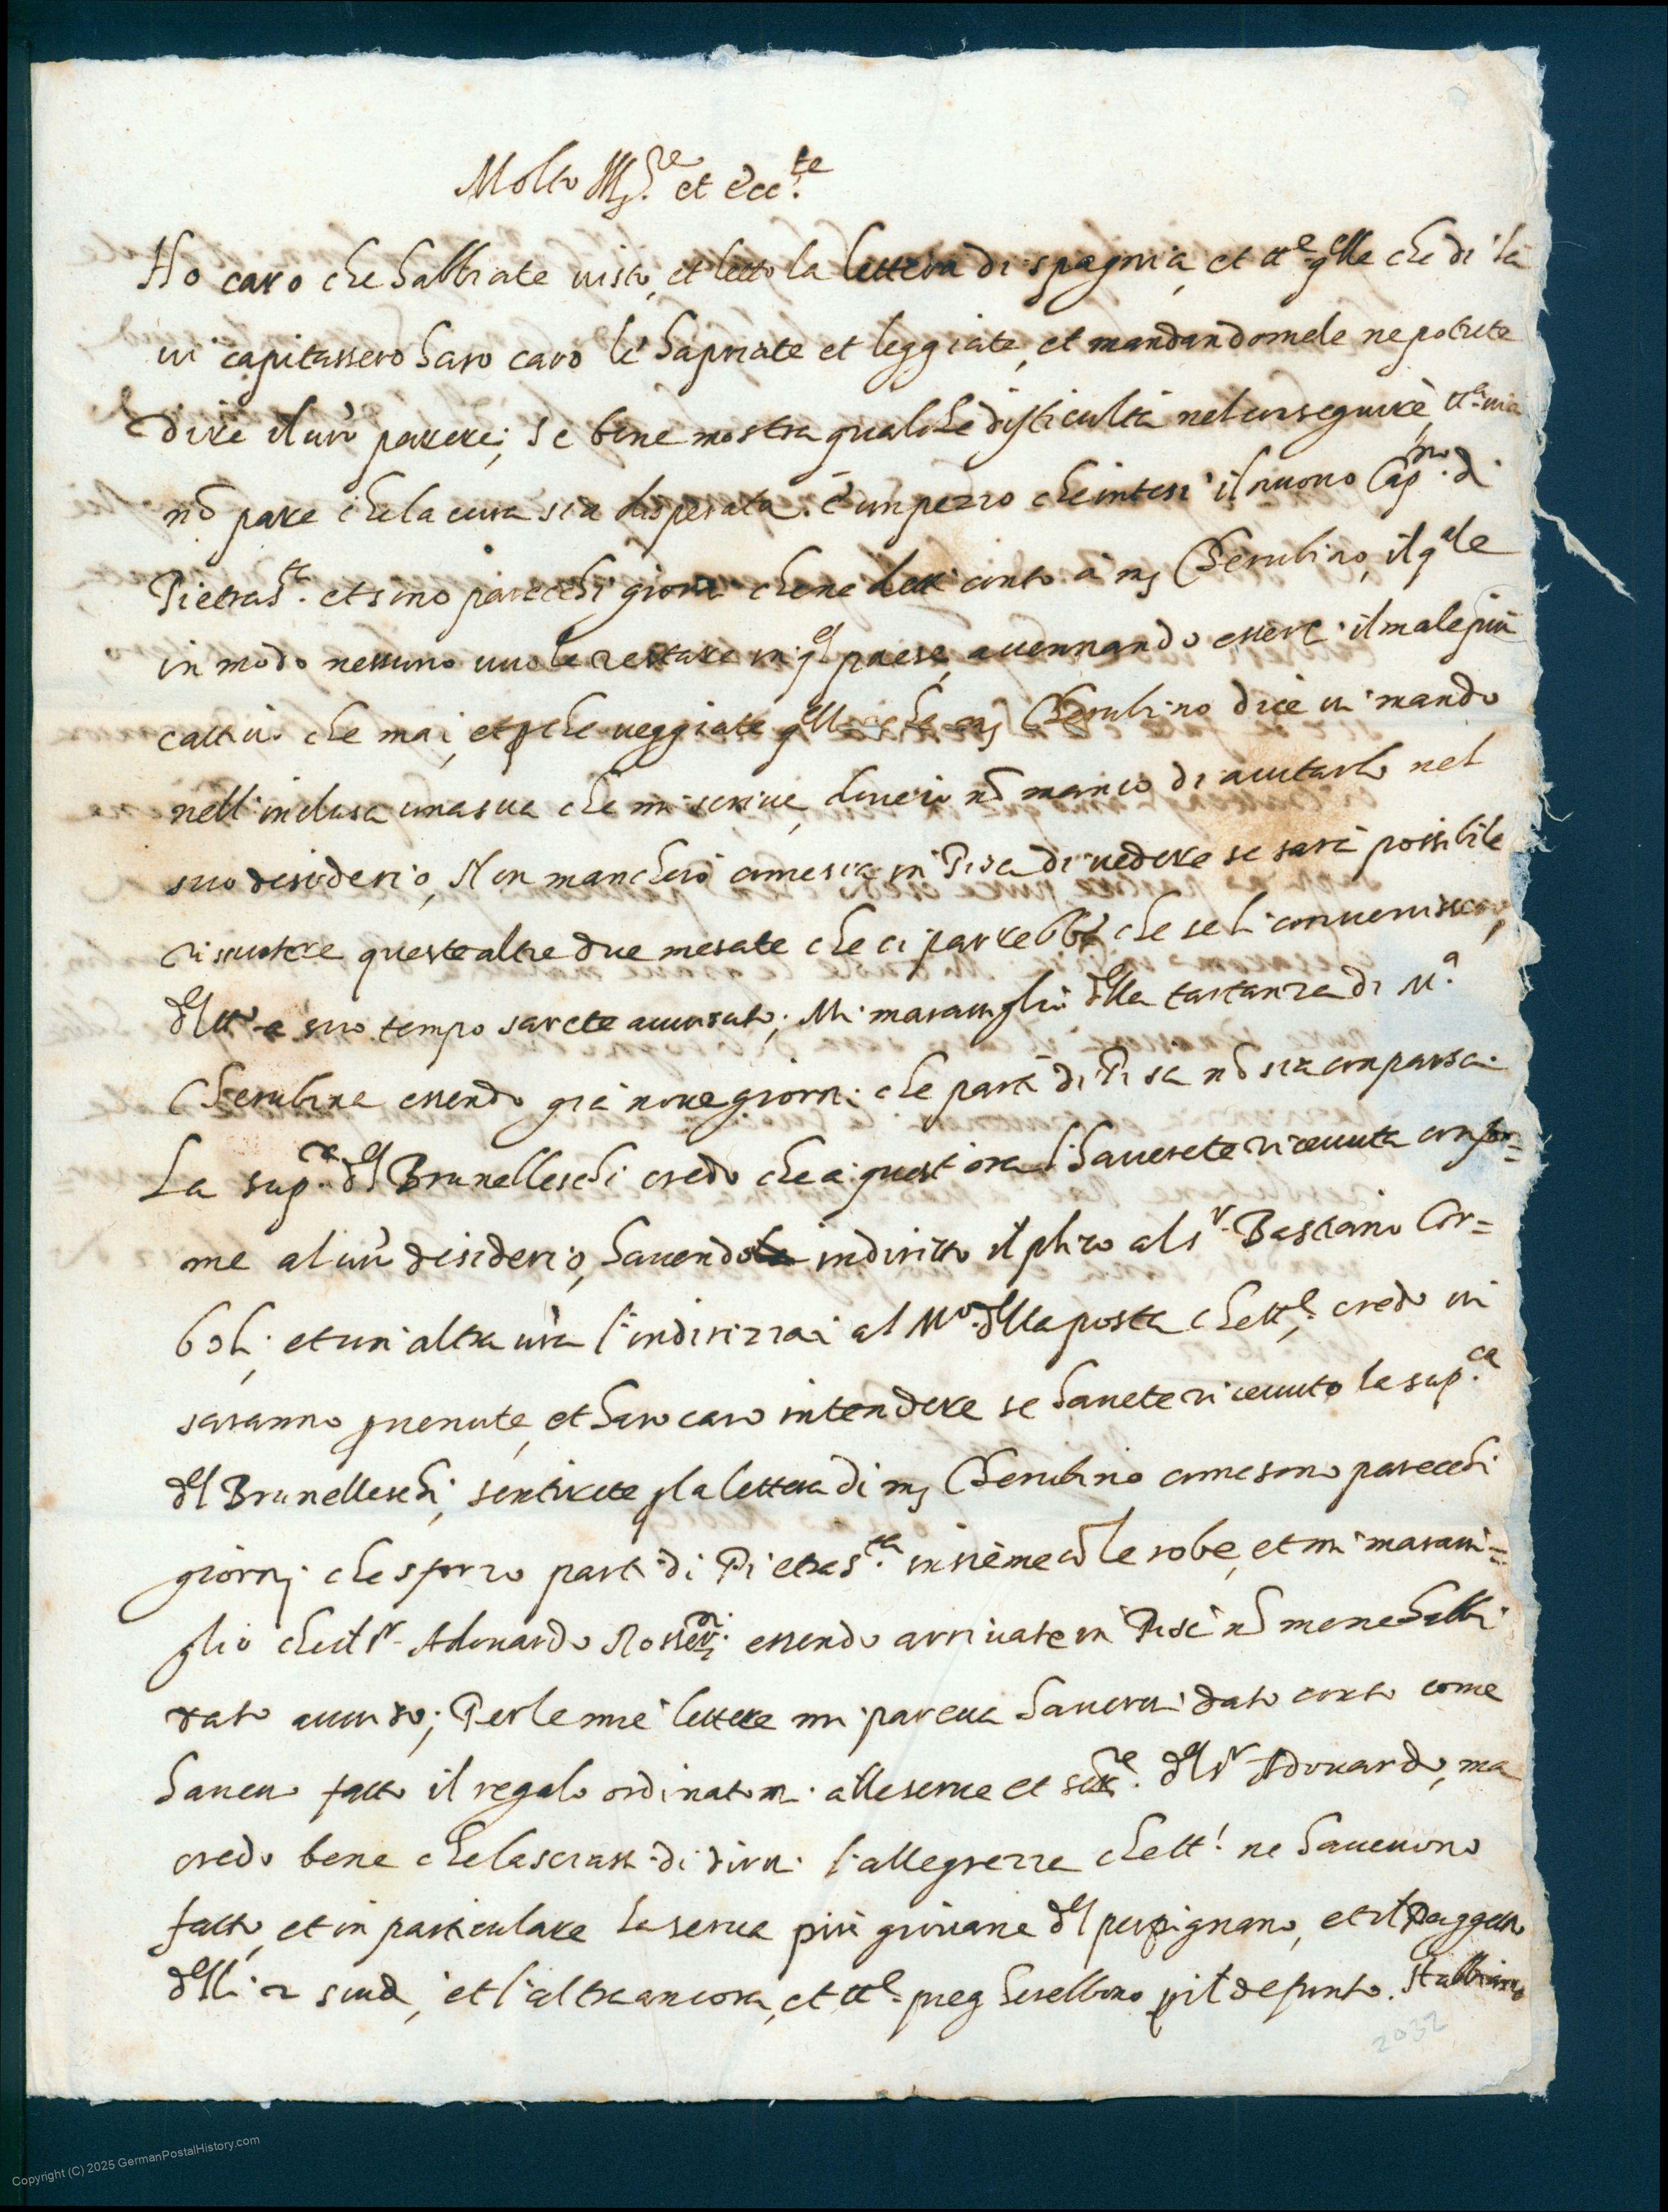 Molto Ill.re et ecc.te
Ho caro che habbiate visto, et letto la lettera di spagnia, et tt.e q.lle che di là
vi capitassero haro caro le hapriate et leggiate, et mandandomele ne potrete
dire il vro parere; se bene mostra qualche dificultà nel conseguire, tt.a via
nō pare che la cura sia disperata. è un pezzo che intesi il nuovo Cap.no di
Pietras.ta et sono parecchi giorni che ne detti conto a ms Cherubino, il q.ale
in modo nessuno vuole restare in q.el paese, accennando essere il male più
cattivo che mai, et p che veggiate q.ello che ms Cherubino dice vi mando
nell'inclusa una sua che mi scrive, nō manco di aiutarlo nel
suo desiderio, Non mancherò come sia in Pisa di vedere se sarà possibile
riscuotere queste altre due mesate che ci parrebbe che se li convenissero,
del tt.o a suo tempo sarete avvisato; Mi maraviglio della tardanza di M.a
Cherubina essendo già nove giorni che partì di Pisa nō sia comparsa.
La sup.ca del Brunelleschi credo che a quest'ora l'haverete ricevuta confor=
me al vro desiderio, havendo indiritto il plico al s.r Bastiano Cor=
boli; et un'altra vra l'indirizzai al M.ro della posta che tt.e credo vi
saranno pvenute, et haro caro intendere se havete ricevuto la sup.ca
del Brunelleschi, sentirete p la lettera di ms Cherubino come sono parecchi
giorni che sforzo partì di Pietras.ta insieme cō le robe, et mi maravi=
glio che il s.r Adouardo essendo arrivate in Pisa nō me ne habbi
dato avviso; Per le mie lettere mi pareva havervi dato conto come
havevo fatto il regalo ordinatomi alle serve et ser.re del s.r Adouardo, ma
credo bene che lasciassi di dirvi l'allegrezze che tt.i ne havevono
fatto, et in particulare la serva più giovane del perpignano, et il Paggetto
delli 2 scudi, et l'altra ancora, et tt.e preg herebbono p il defunto.
2032
Copyright (C) 2025 GermanPostalHistory.com